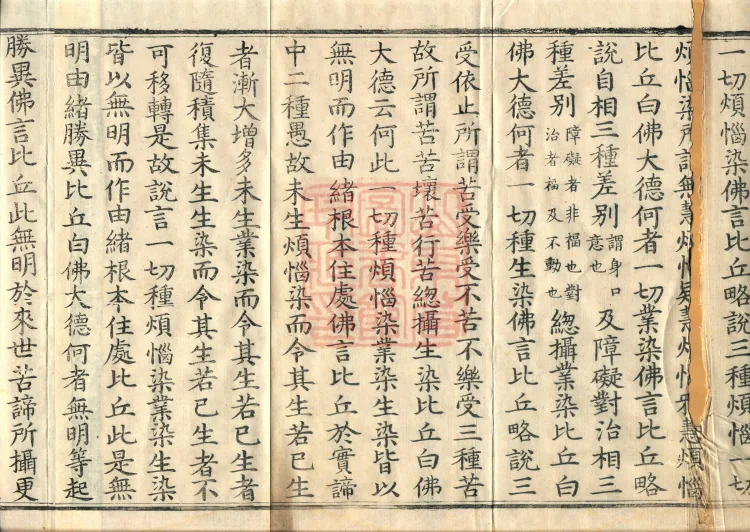 一切煩惱染佛言比丘略說三種煩惱一切
煩惱染所謂無慧煩惱疑慧煩惱邪慧煩惱
比丘白佛大德何者一切業染佛言比丘略
說自相三種差別謂身口意也及障礙對治相三
種差別障礙者非福也對治者福及不動也緫攝業染比丘白
佛大德何者一切種生染佛言比丘略說三
受依止所謂苦受樂受不苦不樂受三種苦
故所謂苦苦壞苦行苦緫攝生染比丘白佛
大德云何此一切種煩惱染業染生染皆以
無明而作由緒根本住處佛言比丘於實諦
中二種愚故未生煩惱染而令其生若已生
者漸大增多未生業染而令其生若已生者
復隨積集未生生染而令其生若已生者不
可移轉是故說言一切種煩惱染業染生染
皆以無明而作由緒根本住處比丘此是無
明由緒勝異比丘白佛大德何者無明等起
勝異佛言比丘此無明於來世苦諦所攝更